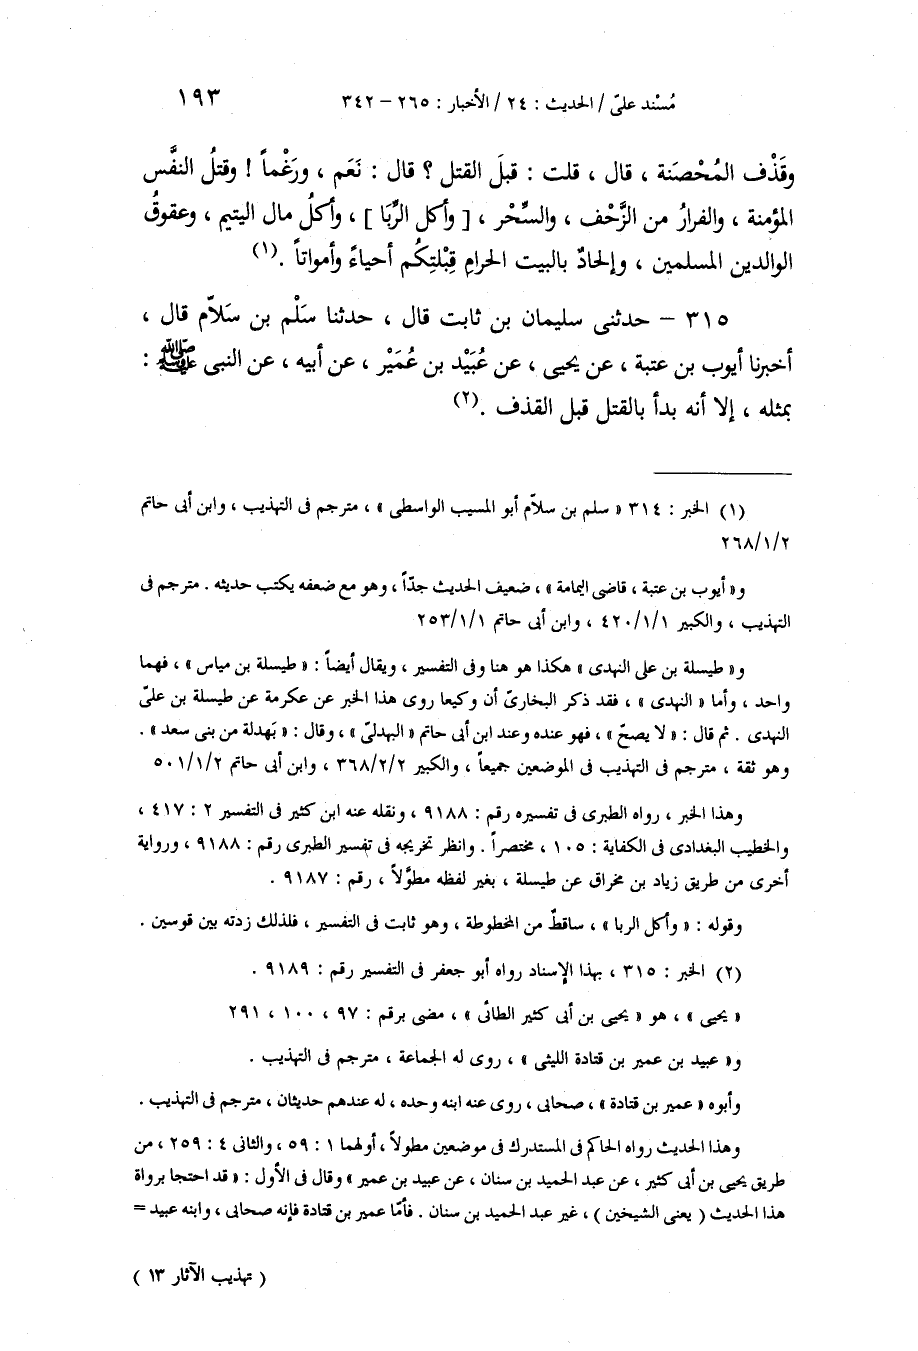 مُسْند علىّ / الحديث : ٢٤ / الأخبار : ٢٦٥ – ٣٤٢
١٩٣
وقَذْف المُحْصنَة ، قال ، قلت : قبلَ القتل ؟ قال : نَعَم ، ورَغْماً ! وقتلُ النفَّس
المؤمنة ، والفرارُ من الزَّحْف ، والسِّحْر ، [ وأكل الرِّبَا ] ، وأكلُ مال اليتيم ، وعقوقُ
الوالدين المسلمين ، وإلحادٌ بالبيت الحرامِ قِبْلتِكُم أحياءً وأمواتاً .(١)
٣١٥ – حدثنى سليمان بن ثابت قال ، حدثنا سَلْم بن سَلاّم قال ،
أخبرنا أيوب بن عتبة ، عن يحيى ، عن عُبَيْد بن عُمَيْر ، عن أبيه ، عن النبى ﷺ :
بمثله ، إلا أنه بدأ بالقتل قبل القذف .(٢)
(١) الخبر : ٣١٤ « سلم بن سلاّم أبو المسيب الواسطى » ، مترجم فى التهذيب ، وابن أبى حاتم
٢/١/٢٦٨
و« أيوب بن عتبة ، قاضى اليمامة » ، ضعيف الحديث جدّاً ، وهو مع ضعفه يكتب حديثه . مترجم فى
التهذيب ، والكبير ١/١/٤٢٠ ، وابن أبى حاتم ١/١/٢٥٣
و« طيسلة بن على النهدى » هكذا هو هنا وفى التفسير ، ويقال أيضاً : « طيسلة بن مياس » ، فهما
واحد ، وأما « النهدى » ، فقد ذكر البخارىّ أن وكيعا روى هذا الخبر عن عكرمة عن طيسلة بن علىّ
النهدى . ثم قال : « لا يصحّ » ، فهو عنده وعند ابن أبى حاتم « البهدلىّ » ، وقال : « بَهدلة من بنى سعد » .
وهو ثقة ، مترجم فى التهذيب فى الموضعين جميعاً ، والكبير ٢/٢/٣٦٨ ، وابن أبى حاتم ٢/١/٥٠١
وهذا الخبر ، رواه الطبرى فى تفسيره رقم : ٩١٨٨ ، ونقله عنه ابن كثير فى التفسير ٢ : ٤١٧ ،
والخطيب البغدادى فى الكفاية : ١٠٥ ، مختصراً . وانظر تخريجه فى تفسير الطبرى رقم : ٩١٨٨ ، ورواية
أخرى من طريق زياد بن مخراق عن طيسلة ، بغير لفظه مطوَّلاً ، رقم : ٩١٨٧ .
وقوله : « وأكل الربا » ، ساقطٌ من المخطوطة ، وهو ثابت فى التفسير ، فلذلك زدته بين قوسين .
(٢) الخبر : ٣١٥ ، بهذا الإسناد رواه أبو جعفر فى التفسير رقم : ٩١٨٩ .
« يحيى » ، هو « يحيى بن أبى كثير الطائى » ، مضى برقم : ٩٧ ، ١٠٠ ، ٢٩١
و« عبيد بن عمير بن قتادة الليثى » ، روى له الجماعة ، مترجم فى التهذيب .
وأبوه « عمير بن قتادة » ، صحابى ، روى عنه ابنه وحده ، له عندهم حديثان ، مترجم فى التهذيب .
وهذا الحديث رواه الحاكم فى المستدرك فى موضعين مطولاً ، أولهما ١ : ٥٩ ، والثانى ٤ : ٢٥٩ ، من
طريق يحيى بن أبى كثير ، عن عبد الحميد بن سنان ، عن عبيد بن عمير » وقال فى الأول : « قد احتجا برواة
هذا الحديث ( يعنى الشيخين ) ، غير عبد الحميد بن سنان . فأمّا عمير بن قتادة فإنه صحابى ، وابنه عبيد =
( تهذيب الآثار ١٣ )